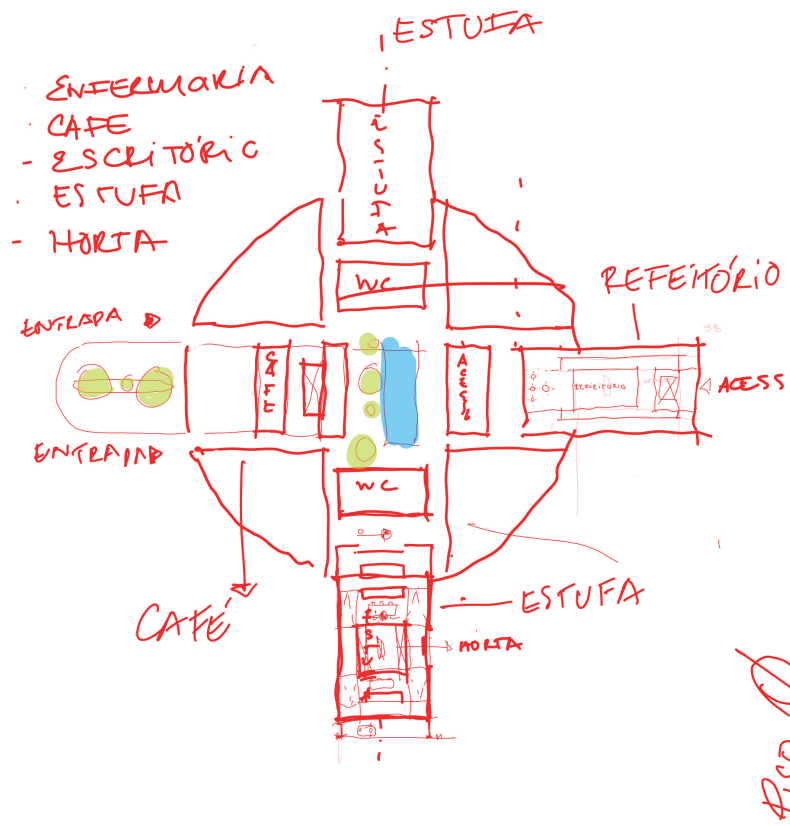 ESTUFA
ENFERMARIA
CAFE
- ESCRITÓRIO
ESTUFA
- HORTA
ESTUFA
WC
REFEITÓRIO
ENTRADA
CAFE
REFEITÓRIO
ACESS
ENTRADA
WC
CAFÉ
ESTUFA
HORTA